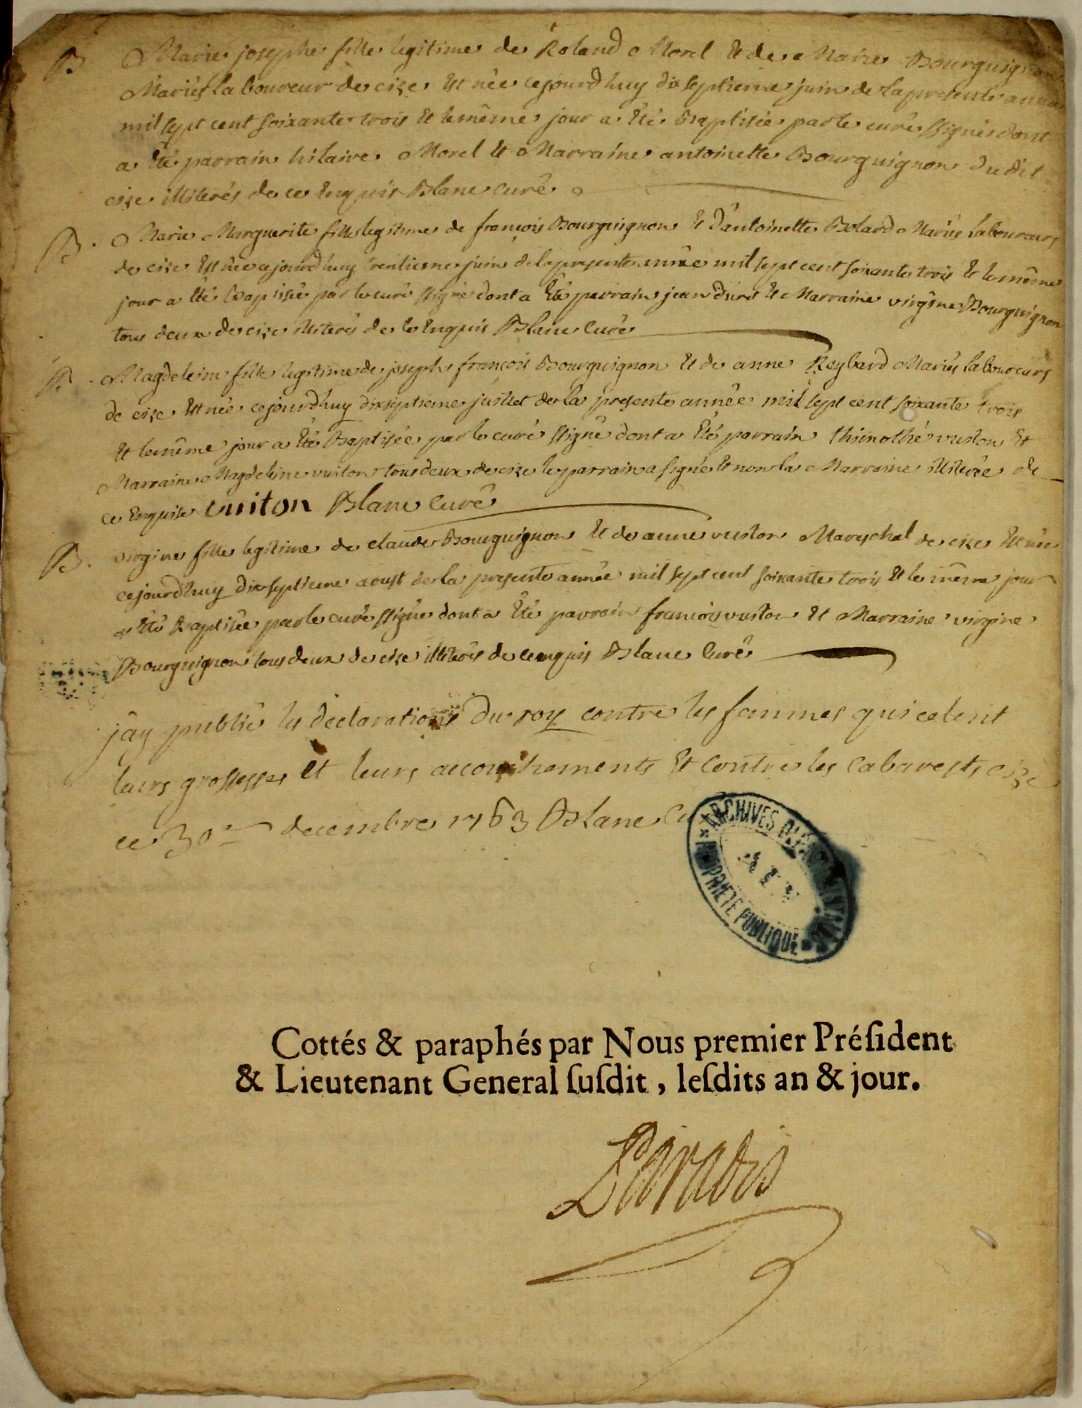 B
Marie josephe fille legitime de Roland Morel et de Marie Bourguignon
Mariés laboureur de cize est née cejourdhuy dixseptieme juin de la presente année
mil sept cent soixante trois et le même jour a été Baptisée par le curé ssigné dont
a été parrain hilaire Morel et Marraine antoinette Bourguignon dudit
cize illiterés de ce enquis Blanc curé
B.
Marie Marguerite fille legitime de françois Bourguignon et d'antoinette Belard Mariés laboureurs
de cize est née cejourdhuy trentieme juin de la presente année mil sept cent soixante trois et le même
jour a été Baptisée par le curé ssigné dont a été parrain jean et Marraine virgine Bourguignon
tous deux de cize illiterés de ce enquis Blanc Curé
B.
Magdeleine fille legitime de joseph françois Bourguignon et de anne Reybard Mariés laboureurs
de cize est née cejourdhuy dixseptieme juillet de la presente année mil sept cent soixante trois
et le même jour a été Baptisée par le curé ssigné dont a été parrain thimothé vuiton et
Marraine Magdeleine vuiton tous deux de cize le parrain a signé et non la Marraine illiterée de
ce enquise vuiton Blanc Curé
B.
virgine fille legitime de claude Bourguignon et de anne vuiton Mareschal de cize est née
cejourdhuy dixseptieme aoust de la presente année mil sept cent soixante trois et le même jour
a été Baptisée par le curé ssigné dont a été parrain françois vuiton et Marraine virgine
Bourguignon tous deux de cize illiterés de ce enquis Blanc Curé
j'ay publié les declarations du roy contre les fammes qui celent
leurs grossesses et leurs accouchements et contre les cabarests cize
ce 30e decembre 1763 Blanc Cu
ARCHIVES DÉPARTEMENTALES
AIN
PROPRIÉTÉ PUBLIQUE
Cottés & paraphés par Nous premier Préſident
& Lieutenant General ſuſdit, leſdits an & jour.
Paradis